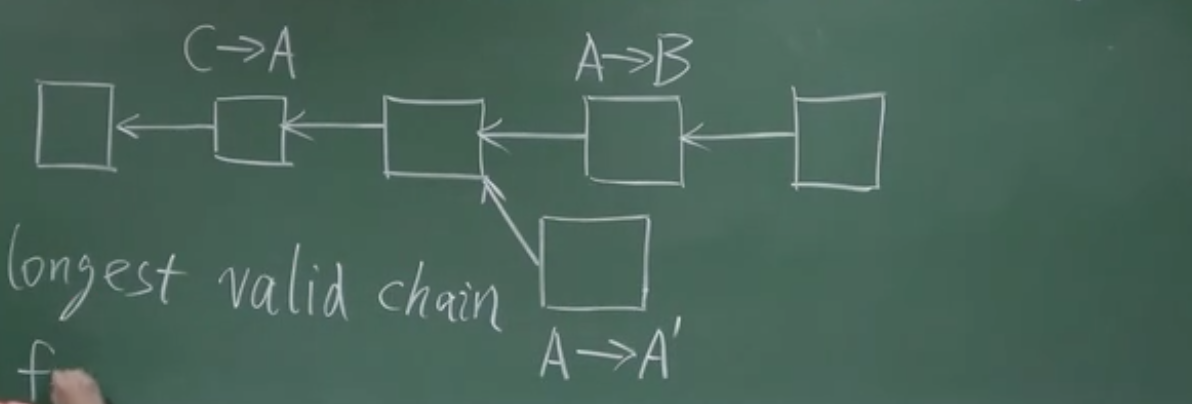 C→A
A→B
longest valid chain
A→A'
f